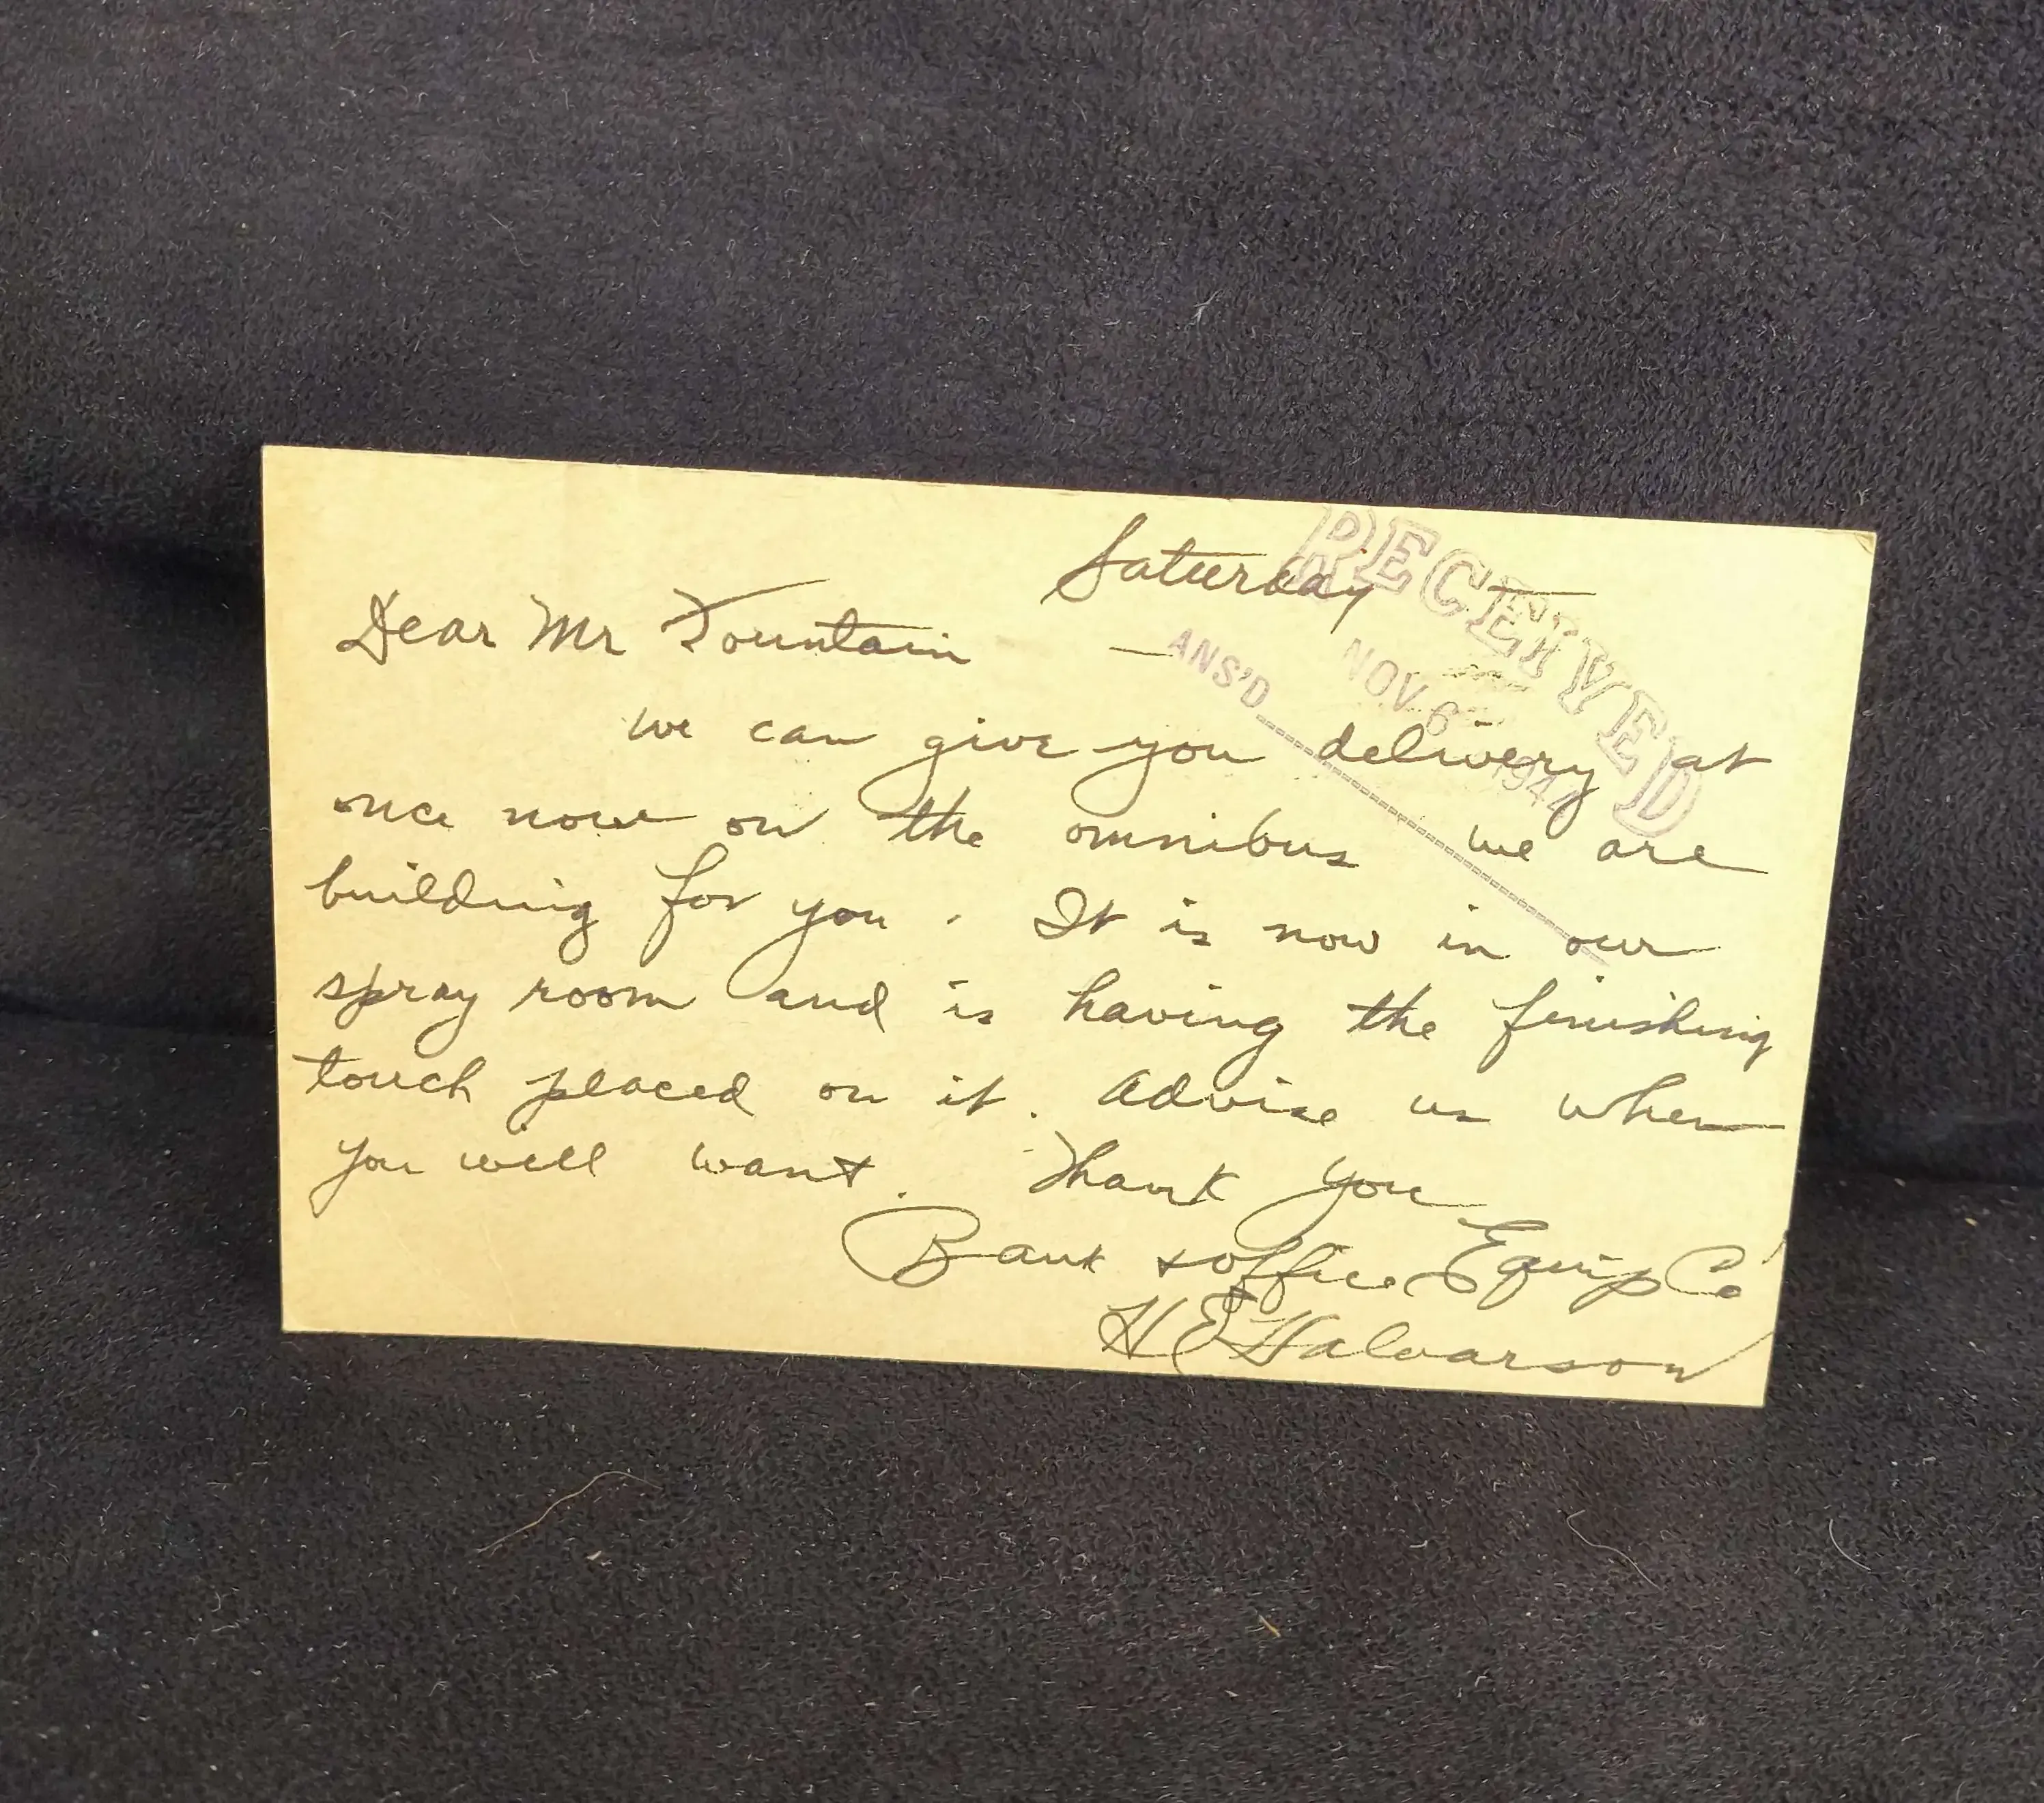 Saturday
RECEIVED
Dear Mr Fountain —
ANS'D
NOV 6
we can give you delivery at
once now on the omnibus we are
building for you. It is now in our
spray room and is having the finishing
touch placed on it. Advise us when
you will want. Thank you
Bank & Office Equip Co
H E Halvarson